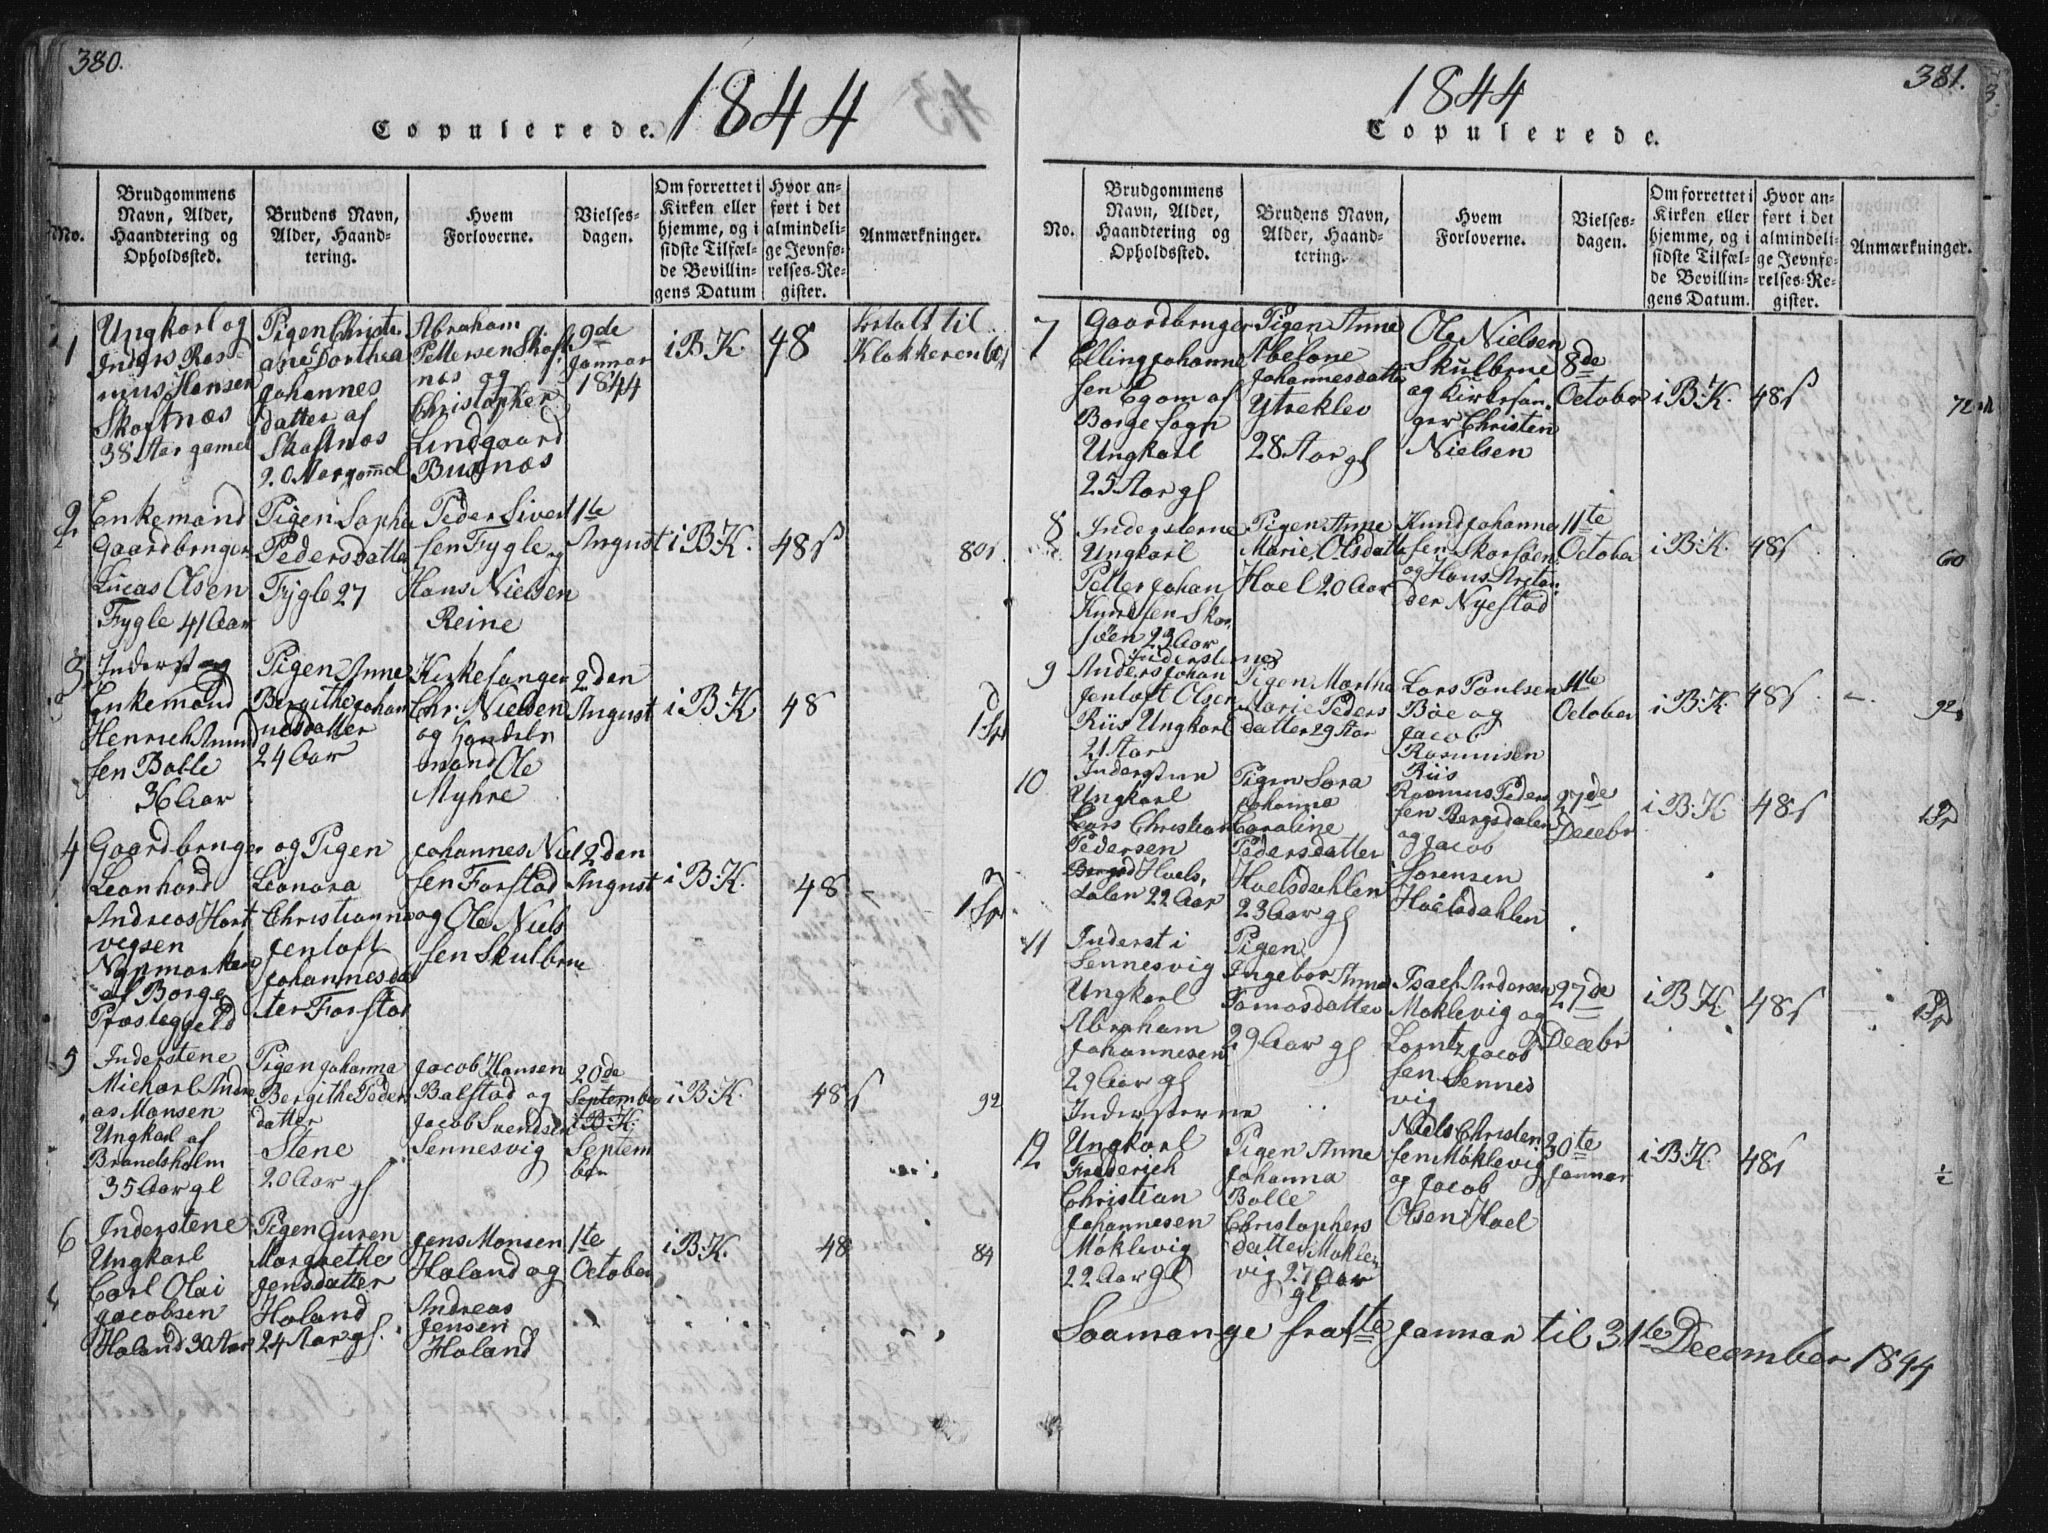 380.
1844
Copulerede.
No.
Brudgommens
Navn, Alder,
Haandtering og
Opholdssted.
Brudens Navn,
Alder, Haand-
tering.
Hvem
Forloverne.
Vielses-
dagen.
Om forrettet i
Kirken eller
hjemme, og i
sidste Tilfæl-
de Bevillin-
gens Datum
Hvor an-
ført i det
almindeli-
ge Jevnfø-
relses-Re-
gister.
Anmærkninger.
1
Ungkarl og
Inders Ras-
mus Hansen
Skaftnæs
38 Aar gamel
Pigen Christi
ane Dorthea
Johannes
datter af
Skaftnæs
20 Aar gammel
Abraham
Pettersen Skaft
næs og
Christopher
Lindgaard
Buxnæs
9de
Januar
1844
i B.K.
48
betalt til
Klokkeren 60s
2
Enkemand
Gaardbruger
Lucas Olsen
Fygle 41 Aar
Pigen Sophia
Pedersdatter
Fygle 27
Peder Siver
sen Fygle og
Hans Nielsen
Reine
1te
August
i B.K.
48s
80s.
3
Inderst og
Enkemand
Henrich Amund
sen Balle
36 Aar
Pigen Anne
Bergithe Johan
nesdatter
24 Aar
Kirkesanger
Chr. Nielsen
og Handels
mand Ole
Myhre
2den
August
i B.K.
48
1 Sp
4
Gaardbruger
Leonhard
Andreas Hart
vigsen
Nypmarken
af Borge
Præsteggeld
og Pigen
Leonora
Christianna
Jentoft
Johannesdat
ter Farstad
Johannes Niel
sen Farstad
og Ole Niels
sen Skulbrue
2den
August
i B.K.
48
1 Sp
5
Inderstene
Michael Andre
as Monsen
Ungkarl af
Brandsholm
35 Aar gl
Pigen Johanna
Bergithe Peders
datter
Stene
20 Aar gl
Jacob Hansen
Balstad og
Jacob Svendsen
Sennesvig
20de
September
i B.K.
Septem
ber
i B.K.
48s
92
6
Inderstene
Ungkarl
Carl Olai
Jacobsen
Haland 30 Aar
Pigen Guren
Margrethe
Jensdatter
Haland
24 Aar gl.
Jens Monsen
Haland og
Andreas
Jensen
Haland
1te
October
i B.K.
48
84
381.
1844
Copulerede.
No.
Brudgommens
Navn, Alder,
Haandtering og
Opholdssted.
Brudens Navn,
Alder, Haand-
tering.
Hvem
Forloverne.
Vielses-
dagen.
Om forrettet i
Kirken eller
hjemme, og i
sidste Tilfæl-
de Bevillin-
gens Datum.
Hvor an-
ført i det
almindeli-
ge Jevnfø-
relses-Re-
gister.
Anmærkninger.
7
Gaardbruger
Elling Johanne
sen Egom af
Borge Sogn
Ungkarl
25 Aar gl
Pigen Anne
Abelone
Johannesdatter
Ytreklev
28 Aar gl
Ole Nielsen
Skulbrue
og Kirkesan-
ger Christen
Nielsen
8de
October
i B.K.
48s
72
8
Inderstene
Ungkarl
Petter Johan
Knudsen Skar
søen 23 Aar
Pigen Anne
Marie Olsdatter
Hoel 20 Aar
Knud Johanne
sen Skarsøen
og Hans
der Nyestad
11te
October
i B.K.
48s
60
9
Inderstene
Anders Johan
Jentoft Olsen
Riis Ungkarl
21 Aar
Pigen Martha
Marie Peders
datter 29 Aar
Lars Paulsen
Bøe og
Jacob
Rasmusen
Riis
11te
October
i B.K.
48s
92
10
Inderstene
Ungkarl
Lars Christian
Pedersen
Hoels.
dalen 22 Aar
Pigen Sara
Johanna
Caroline
Pedersdatter
Hoelsdahlen
23 Aar gl
Rasmus Peder
sen Bergsdalen
og Jacob
Sørensen
Hoelsdahlen
27de
Decebr
i B.K
48s
1 Sp
11
Inderst i
Sennesvig
Ungkarl
Abraham
Johannesen
29 Aar gl
Pigen
Ingebor Anna
Tomasdatter
29 Aar gl
Isach Andersen
Moklevig og
Lorntz Jacob
sen Sennes
vig
27de
Decebr
i B.K
48s
1 Sp
12
Inderstene
Ungkarl
Frederich
Christian
Johannesen
Moklevig
22 Aar gl
Pigen Anne
Johanna
Balle
Christophers
datter Mokle
vig 27 Aar
gl
Niels Christen
sen Moklevig
og Jacob
Olsen Hoel
30te
Januar
i B.K.
48s
½
Saamange fra 1te Januar til 31te December 1844